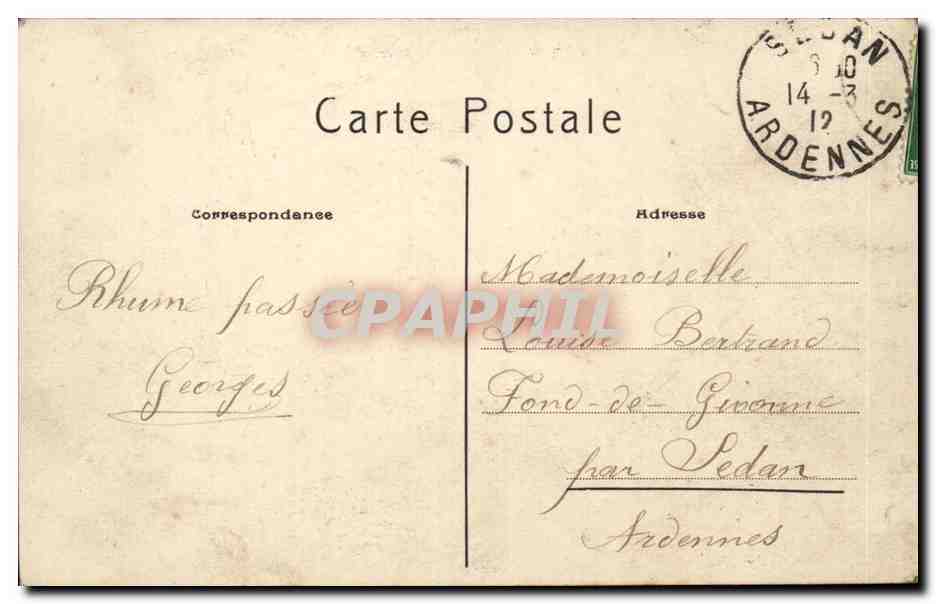 Carte Postale
SEDAN
10
14 -3
12
ARDENNES
Correspondance
Rhume passée
Georges
Adresse
Mademoiselle
Louise Bertrand
Fond-de-Givonne
par Sedan
Ardennes
CPAPHIL